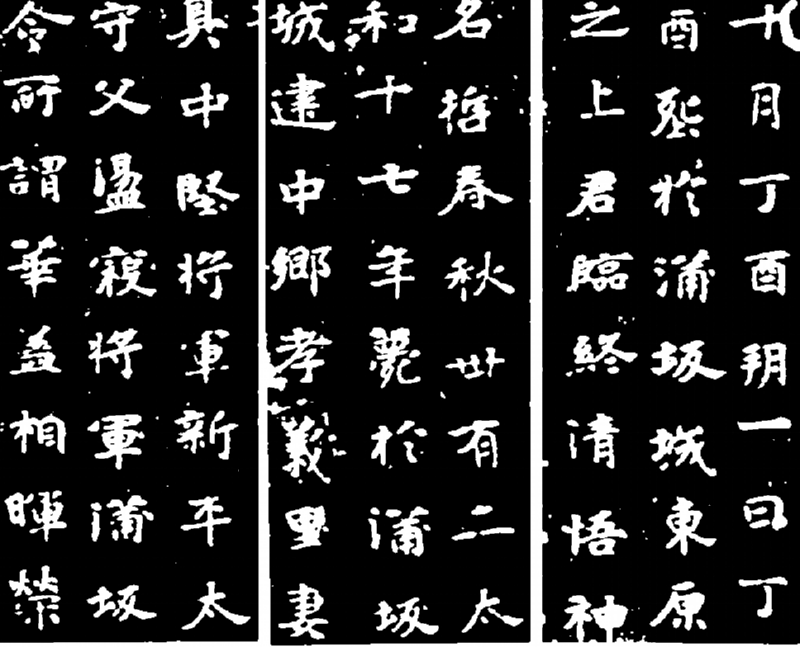 十月丁酉朔一日丁
酉葬於蒲坂城東原
之上君臨終清悟神
名哲春秋卅有二太
和十七年薨於蒲坂
城建中鄉孝義里妻
具中堅將軍新平太
守父盪寇將軍蒲坂
令所謂華蓋相暉榮